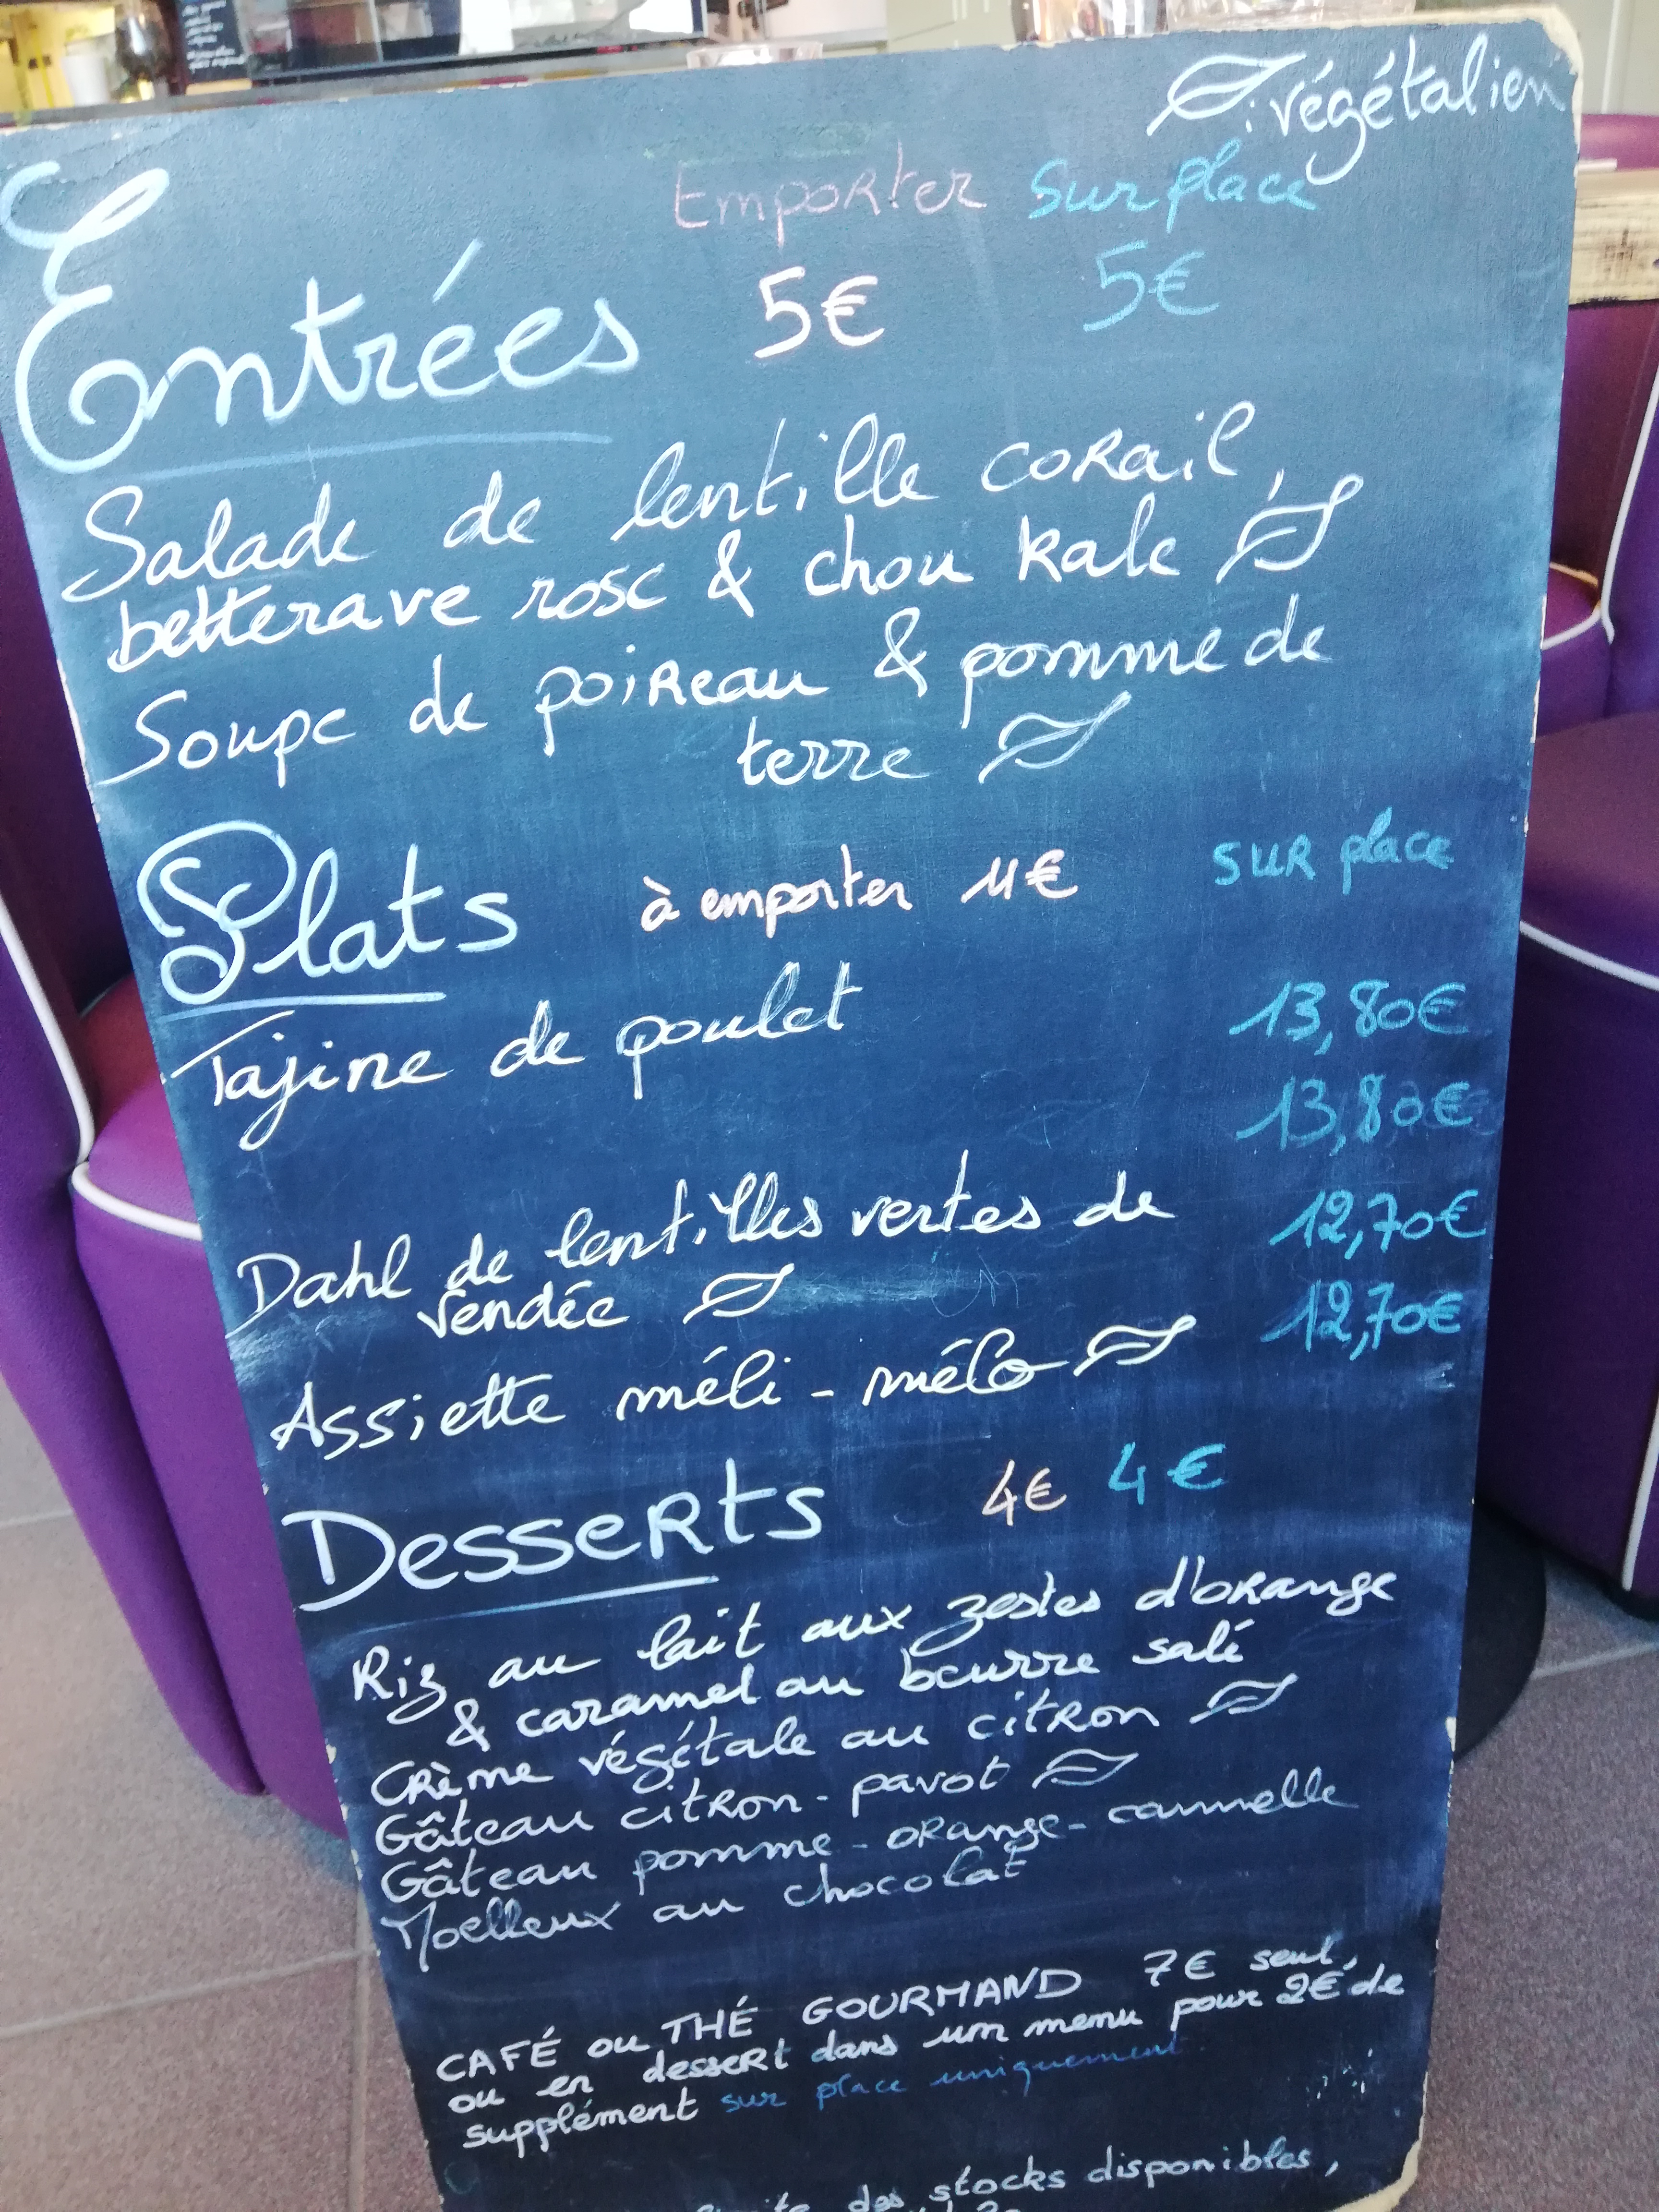 : végétalien
Emporter Sur place
Entrées 5€ 5€
Salade de lentille corail,
betterave rose & chou kale
Soupe de poireau & pomme de
terre
Plats à emporter 11€ sur place
Tajine de poulet 13,80€
13,80€
Dahl de lentilles vertes de 12,70€
vendée
Assiette méli-mélo 12,70€
Desserts 4€ 4€
Riz au lait aux zestes d'orange
& caramel au beurre salé
Crème végétale au citron
Gâteau citron-pavot
Gâteau pomme-orange-cannelle
Moelleux au chocolat
CAFÉ ou THÉ GOURMAND 7€ seul,
ou en dessert dans un menu pour 2€ de
supplément sur place uniquement
des stocks disponibles,